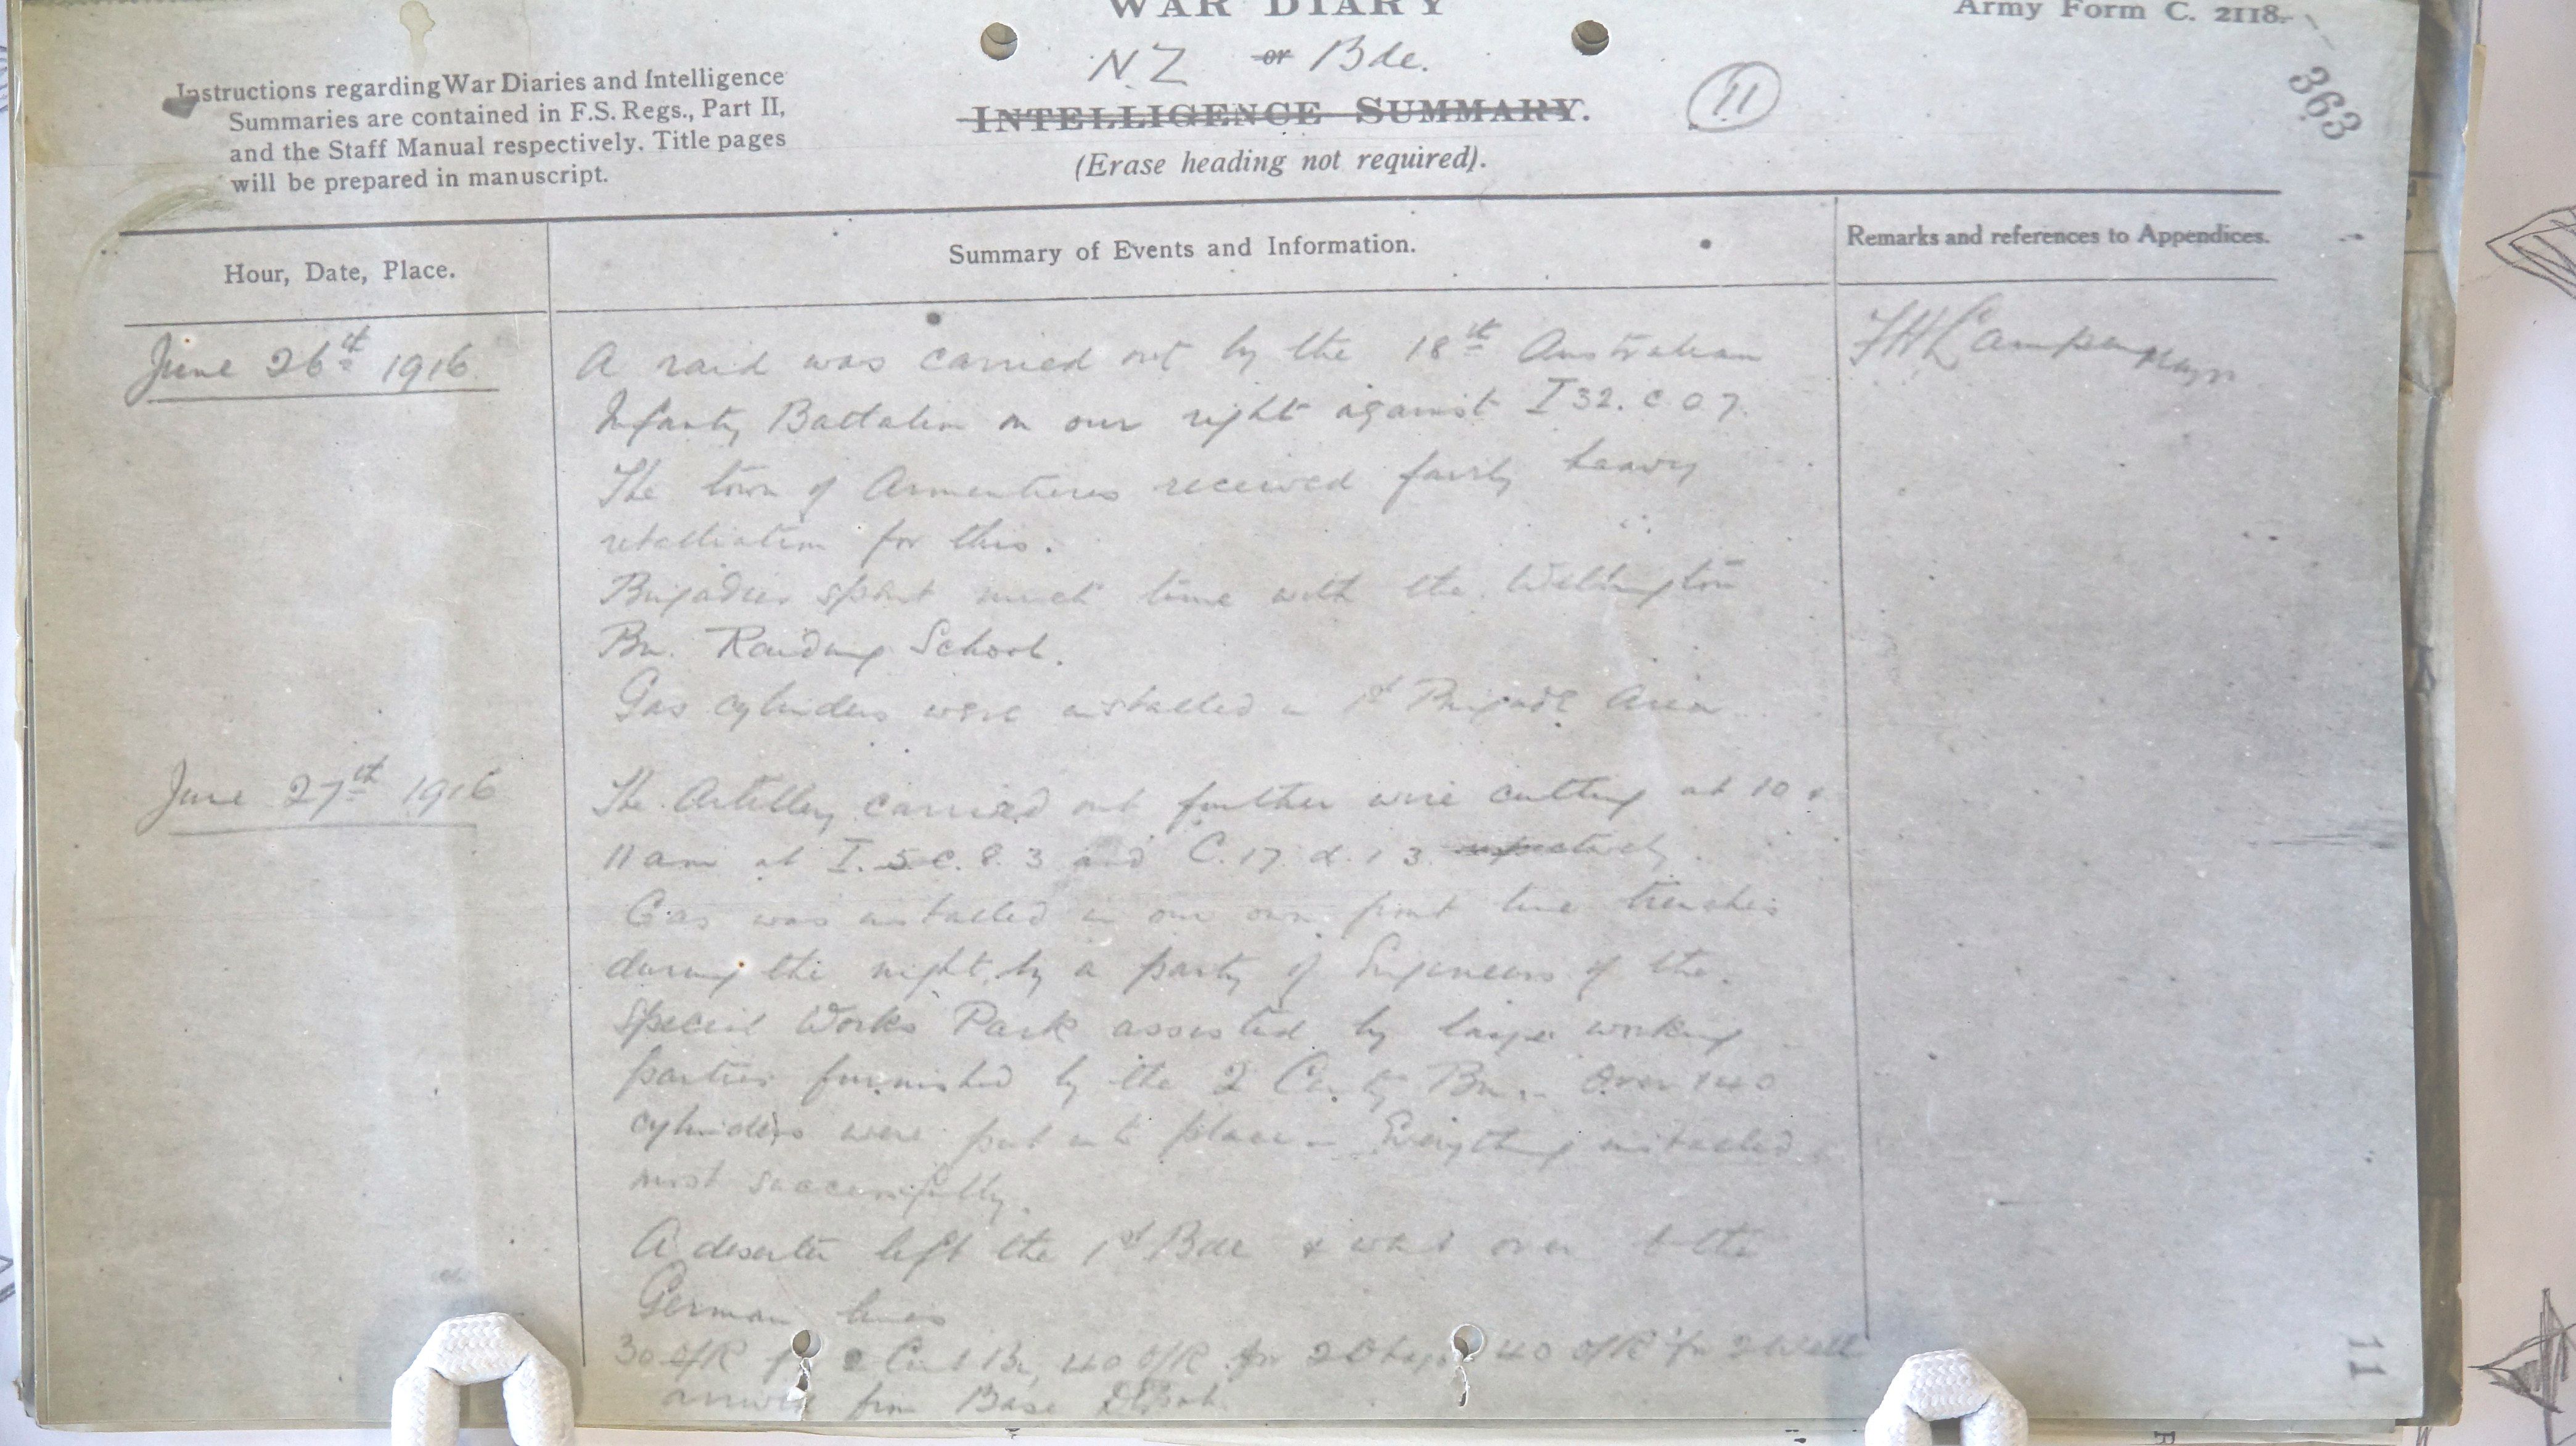 WAR DIARY
Army Form C. 2118.
NZ or Bde.
INTELLIGENCE SUMMARY.
(Erase heading not required).
11
363
Instructions regarding War Diaries and Intelligence
Summaries are contained in F.S. Regs., Part II,
and the Staff Manual respectively. Title pages
will be prepared in manuscript.
Hour, Date, Place.
Summary of Events and Information.
Remarks and references to Appendices.
June 26th 1916
A raid was carried out by the 18th Australian
Infantry Battalion on our right against I 32. c 0 7.
The town of Armentieres received fairly heavy
retaliation for this.
Brigadier spent much time with the Wellington
Bn. Raiding School.
Gas cylinders were installed in 1st Brigade Area
June 27th 1916
The Artillery carried out further wire cutting at 10 &
11 am at I. 5 c. 8. 3 and C. 17. d. 1 3. respectively.
Gas was installed in our own front line trenches
during the night by a party of Engineers of the
Special Works Park assisted by large working
parties furnished by the 2 Canty Bn. - Over 140
cylinders were put into place - Everything installed
most successfully.
A deserter left the 1st Bde & went over to the
German lines
30 O/R for 2 Cant Bn, 40 O/R for 2 Otago 40 O/R for 2 Well
arrived from Base Depot.
11